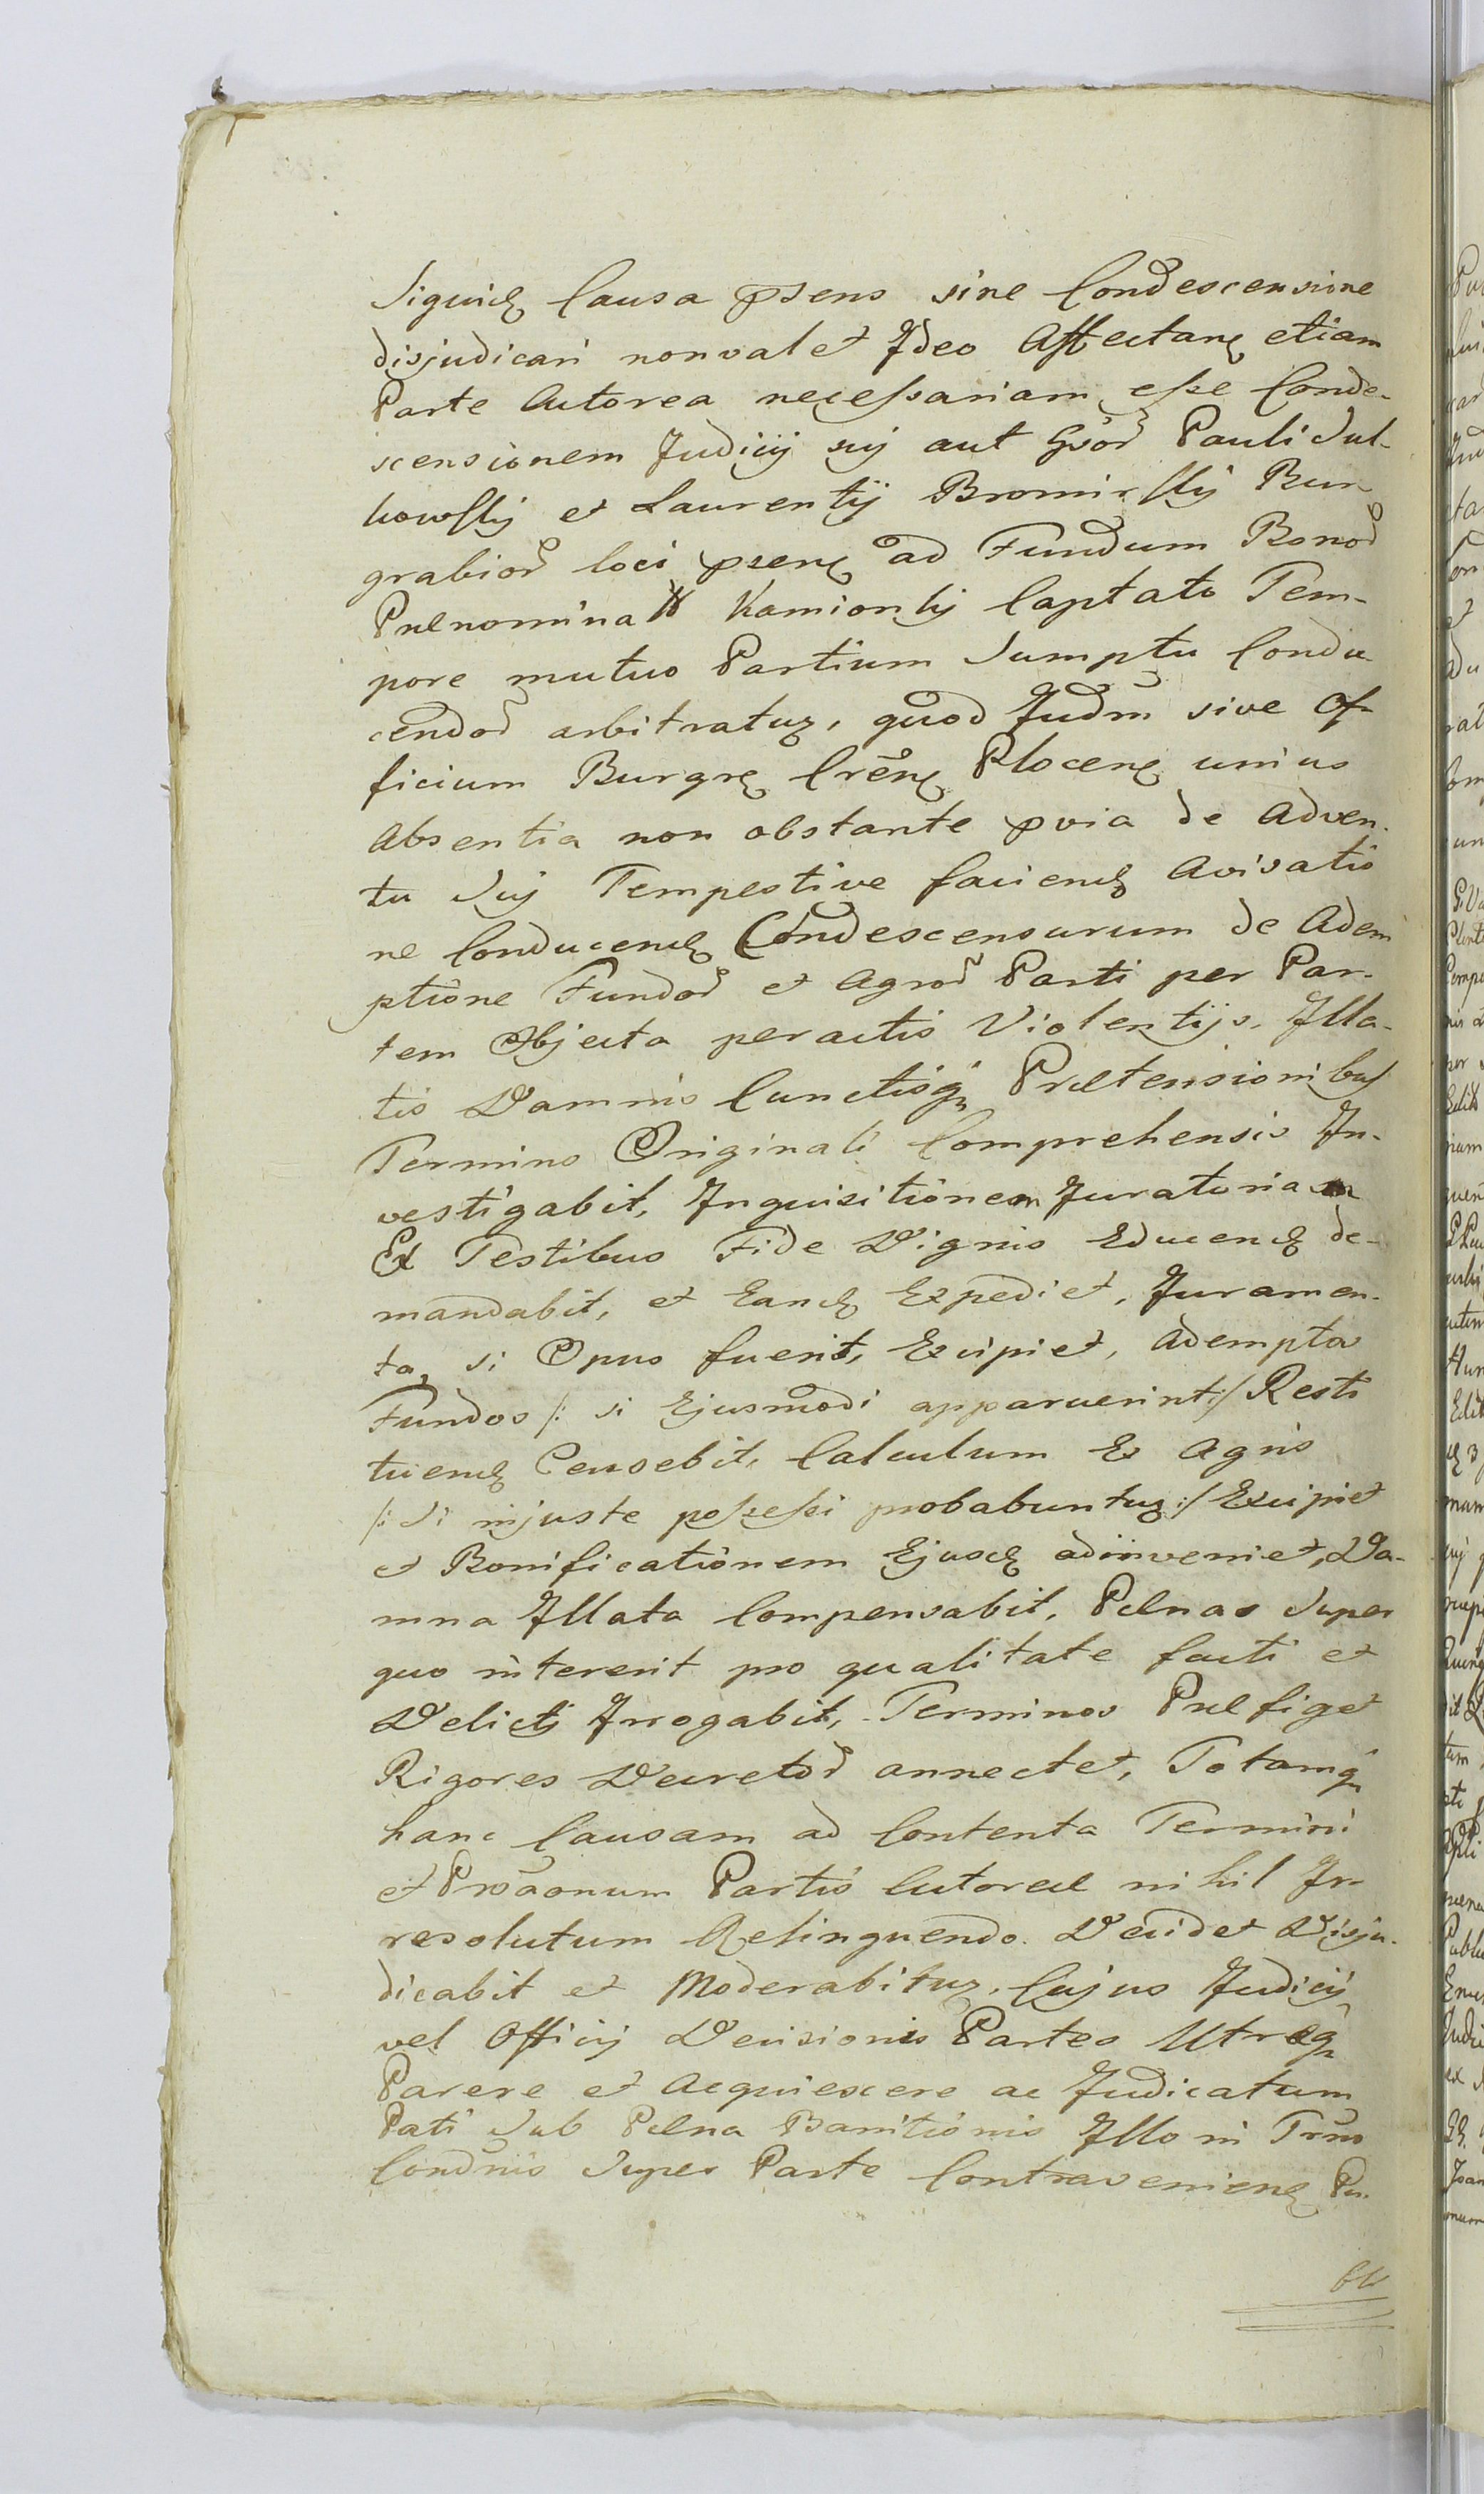 Siquid causa psens sine Condescensione
disjudicari non valet Ideo Affectan etiam
Parte Actorea necessariam esse Conde-
scensionem Judicij sui aut Gsor Pauli Sul-
kowskij et Laurentij Bromirskij Bur-
grabior loci psen ad Fundum Bonor
Prænominatt Kamionkij Captato Tem-
pore mutuo Partium Sumptu Condu-
cendor arbitratur, quod Judm sive Of-
ficium Burgr Cren Plocen unius
Absentia non obstante pvia de Adven-
tu Sui Tempestive faciend Avisatio
ne Conducend Condescensurum de Adem
ptione Fundor et Agror Parti per Par-
tem Objecta peractis Violentijs, Illa-
tis Damnis Cunctisq Prætensionibus
Termino Originali Comprehensis In-
vestigabit, Inquisitionem Juratoriam
Ex Testibus Fide Dignis Educend de-
mandabit, et Eand Expediet, Juramen-
ta, si Opus fuerit, Excipiet, Adempta
Fundos /: si Ejusmodi apparuerint :/ Resti
tuend Censebit, Calculum Ex Agris
/: Si injuste possessi probabuntur :/ Excipiet
et Bonificationem Ejusd adinveniet, Da-
mna Illata Compensabit, Pænas Super
quo intererit pro qualitate facti et
Delicti Irrogabit, Terminos Præfiget
Rigores Decretor annectet, Totamq
hanc Causam ad Contenta Termini
et Proaonum Partis Actoreæ nihil Ir-
resolutum Relinquendo Decidet Disju-
dicabit et Moderabitur, Cujus Judicij
vel Officij Decisionis Partes Utræq
Parere et Acquiescere ac Judicatum
Pati Sub Pæna Banitionis Illo in Trno
Condnis Super Parte Contravenien Pu-
bli